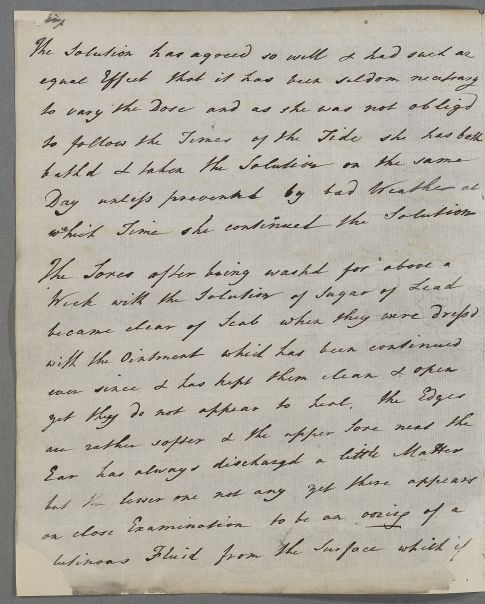 The Solution has agreed so well & had such an
equal Effect that it has been seldom necessary
to vary the Dose and as she was not obligd
to follow the Times of the Tide she has both
bath'd & taken the Solution on the same
Day unless prevented by bad Weather at
which Time she continued the Solution
The Sores after being washd for above a
Week with the Solution of Sugar of Lead
became clear of Scab when they were dress'd
with the Ointment which has been continued
ever since & has kept them clean & open
yet they do not appear to heal, the Edges
are rather softer & the upper Sore near the
Ear has always dischargd a little Matter
but the lesser one not any yet there appears
on close Examination to be an oozing of a
lutinous Fluid from the Surface which if